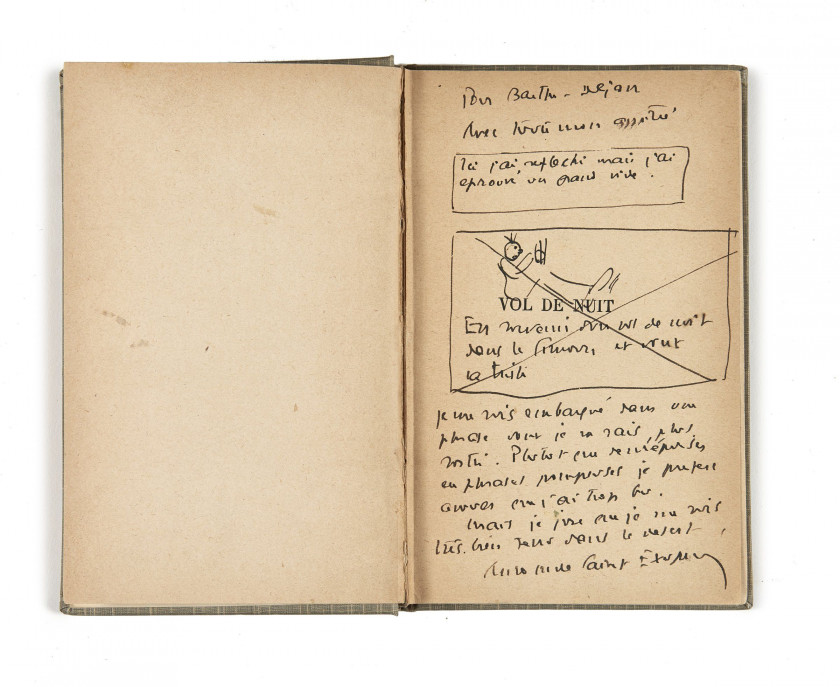 Pour Barthe-Dejean
Avec toute mon amitié
Ici j'ai reflechi mais j'ai
eprouvé un grand vide.
VOL DE NUIT
En souvenir d'un vol de nuit
dans le Simoun, et tout
la
je me suis embarqué dans une
phrase dont je ne sais plus
sortir. Plutot que
en phrases pompeuses je prefere
avouer que j'ai trop bu.
Mais je jure que je me suis
très bien tenu dans le desert
Antoine de Saint Exupéry